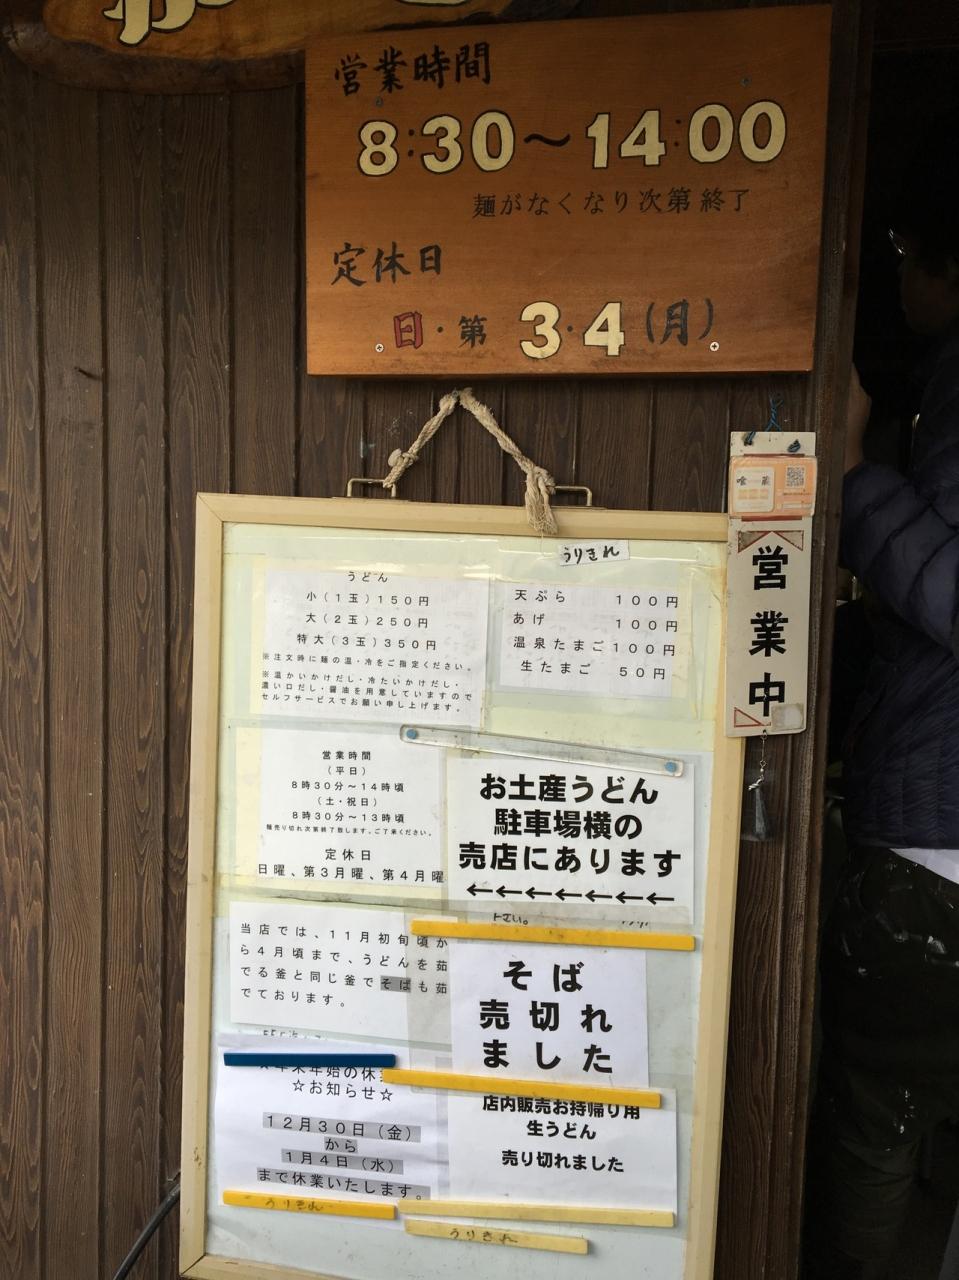 営業時間
8:30～14:00
麺がなくなり次第終了
定休日
日・第3・4(月)
営業中
うりきれ
うどん
小(1玉)150円
大(2玉)250円
特大(3玉)350円
※注文時に麺の温・冷をご指定ください。
※温かいかけだし・冷たいかけだし・
濃い口だし・醤油を用意していますので
セルフサービスでお願い申し上げます。
天ぷら 100円
あげ 100円
温泉たまご100円
生たまご 50円
営業時間
(平日)
8時30分～14時頃
(土・祝日)
8時30分～13時頃
麺売り切れ次第終了致します。ご了承ください。
定休日
日曜、第3月曜、第4月曜
お土産うどん
駐車場横の
売店にあります
←←←←←←←
当店では、11月初旬頃か
ら4月頃まで、うどんを茹
でる釜と同じ釜でそばも茹
でております。
そば
売切れ
ました
年末年始の休
☆お知らせ☆
12月30日(金)
から
1月4日(水)
まで休業いたします。
店内販売お持帰り用
生うどん
売り切れました
うりきれ
うりきれ